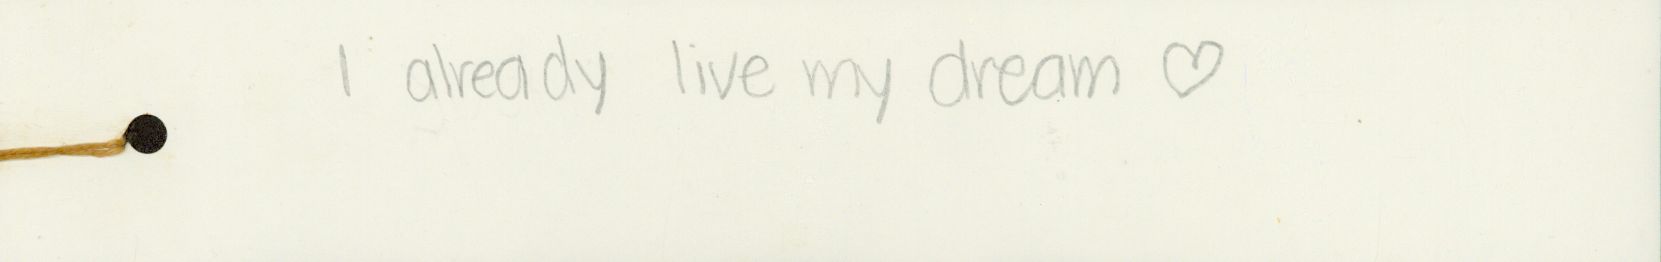 I already live my dream ♡